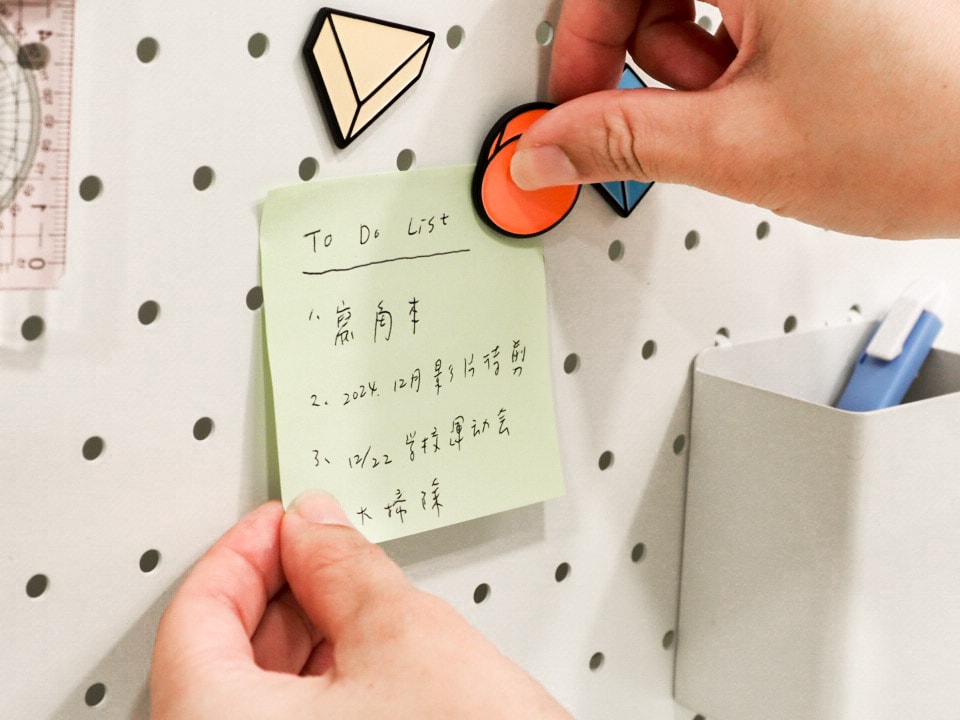 To Do List
1. 寫角本
2、2024.12月影片待剪
3、12/22 学校運动会
大掃除
4
1
0